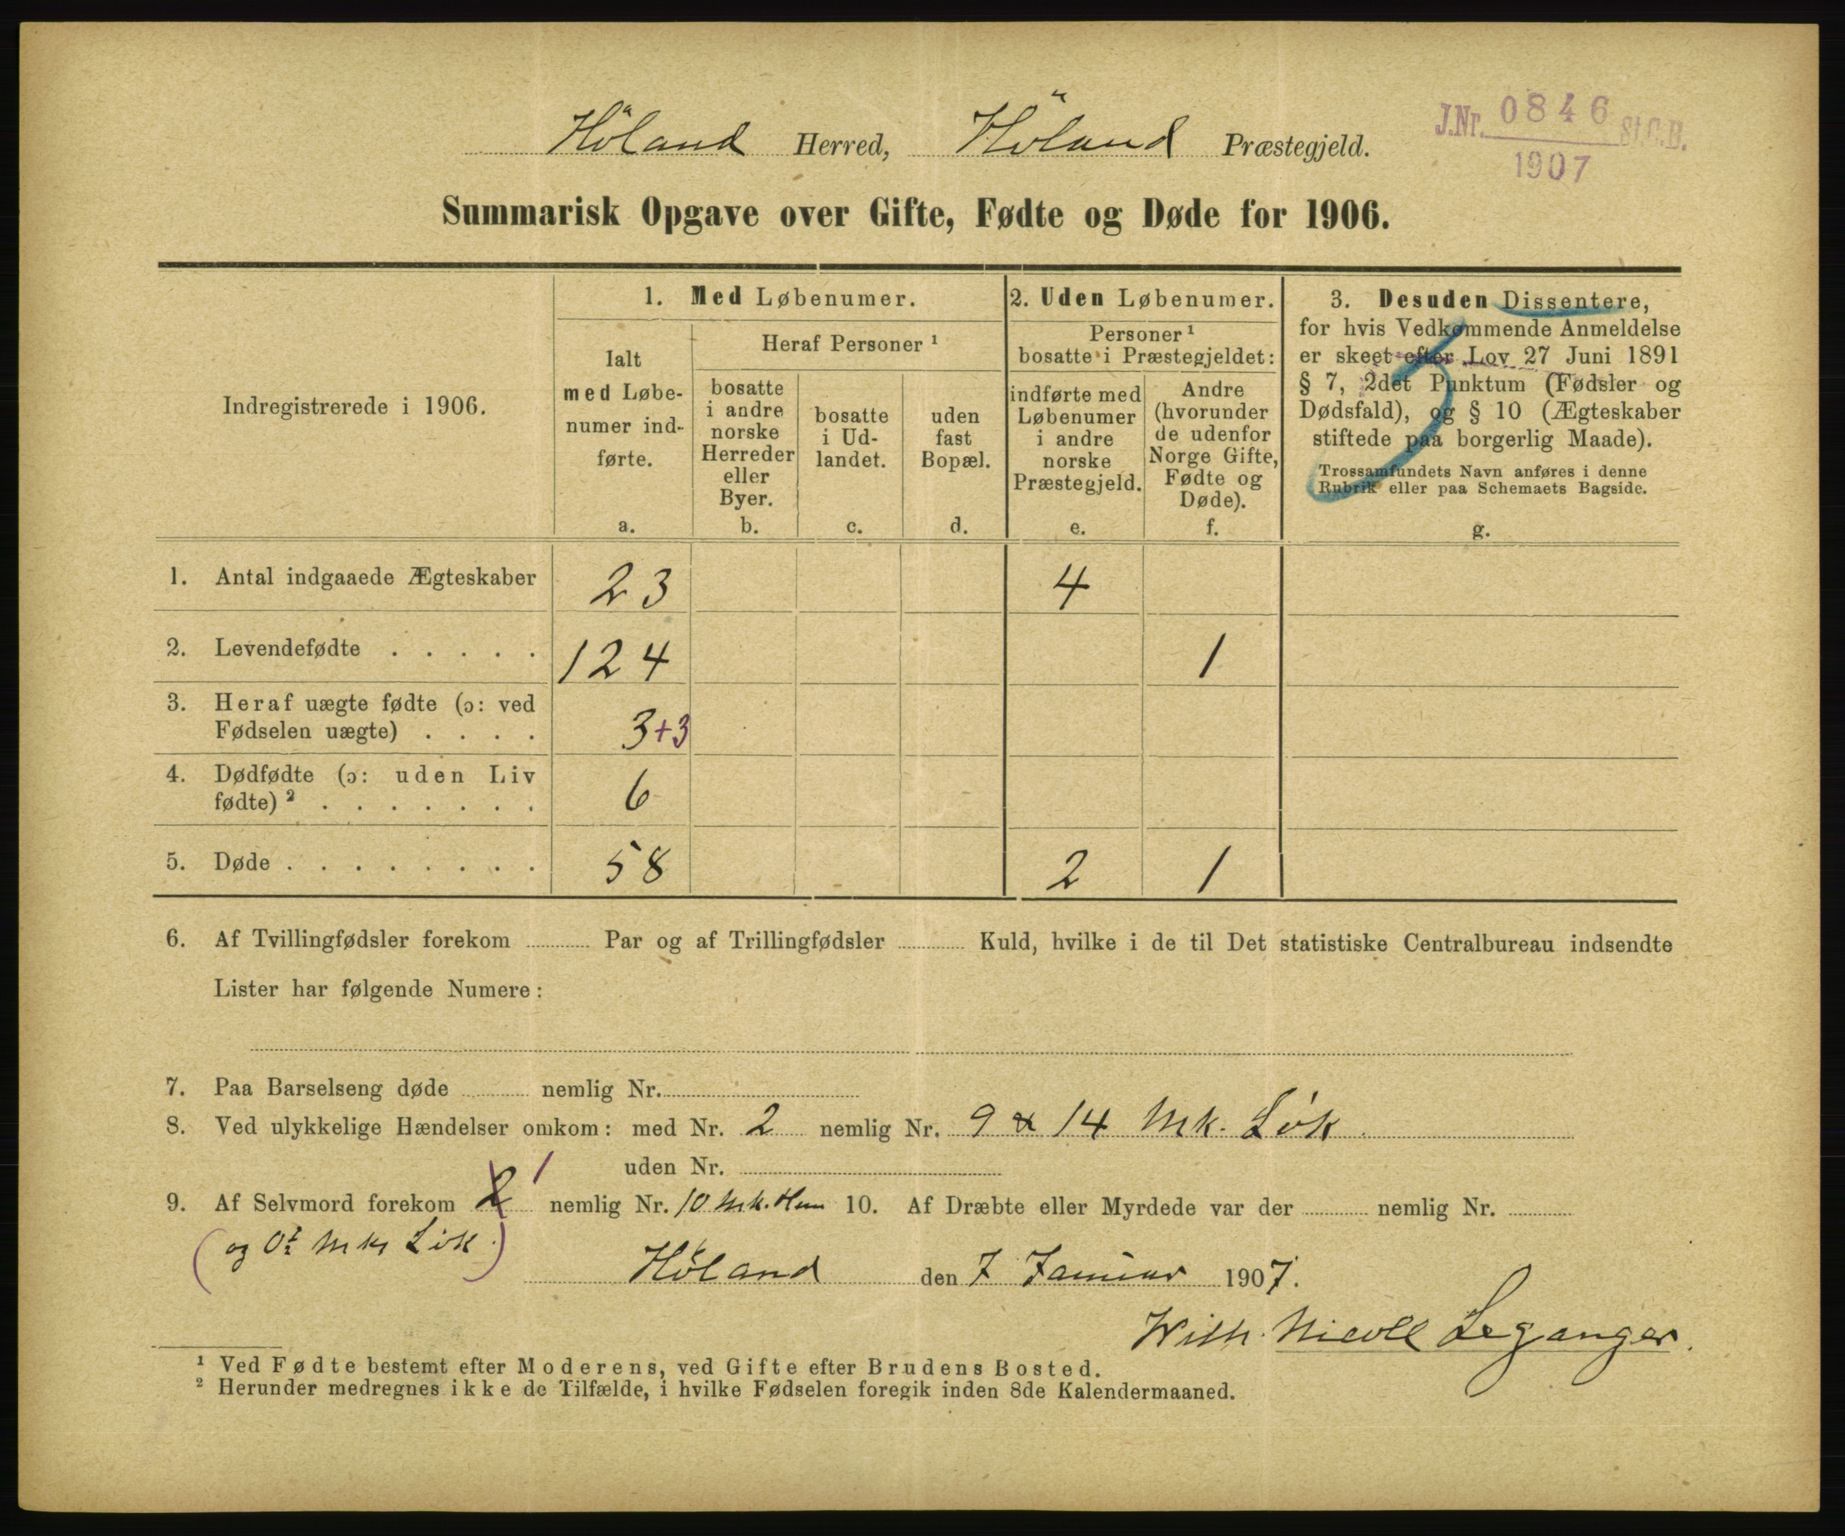 Höland Herred, Höland Præstegjeld.
J.Nr. 0846 St.C.B.
1907
Summarisk Opgave over Gifte, Fødte og Døde for 1906.
Indregistrerede i 1906.
1. Med Løbenumer.
Ialt
med Løbe-
numer ind-
førte.
a.
Heraf Personer ¹
bosatte
i andre
norske
Herreder
eller
Byer.
b.
bosatte
i Ud-
landet.
c.
uden
fast
Bopæl.
d.
2. Uden Løbenumer.
Personer ¹
bosatte i Præstegjeldet:
indførte med
Løbenumer
i andre
norske
Præstegjeld.
e.
Andre
(hvorunder
de udenfor
Norge Gifte,
Fødte og
Døde).
f.
3. Desuden Dissentere,
for hvis Vedkommende Anmeldelse
er skeet efter Lov 27 Juni 1891
§ 7, 2det Punktum (Fødsler og
Dødsfald), og § 10 (Ægteskaber
stiftede paa borgerlig Maade).
Trossamfundets Navn anføres i denne
Rubrik eller paa Schemaets Bagside.
g.
1. Antal indgaaede Ægteskaber 23 4
2. Levendefødte . . . . . 124 1
3. Heraf uægte fødte (ɔ: ved
Fødselen uægte) . . . . 3+3
4. Dødfødte (ɔ: uden Liv
fødte) ² . . . . . . . 6
5. Døde . . . . . . . . 58 2 1
6. Af Tvillingfødsler forekom Par og af Trillingfødsler Kuld, hvilke i de til Det statistiske Centralbureau indsendte
Lister har følgende Numere:
7. Paa Barselseng døde nemlig Nr.
8. Ved ulykkelige Hændelser omkom: med Nr. 2 nemlig Nr. 9 & 14 Mk. Lök.
uden Nr.
9. Af Selvmord forekom 2 1 nemlig Nr. 10 Mk. Hem 10. Af Dræbte eller Myrdede var der nemlig Nr.
(og Mk Lök.)
Höland den 7 Januar 1907.
Wilh. Nicoll Leganger.
¹ Ved Fødte bestemt efter Moderens, ved Gifte efter Brudens Bosted.
² Herunder medregnes ikke de Tilfælde, i hvilke Fødselen foregik inden 8de Kalendermaaned.